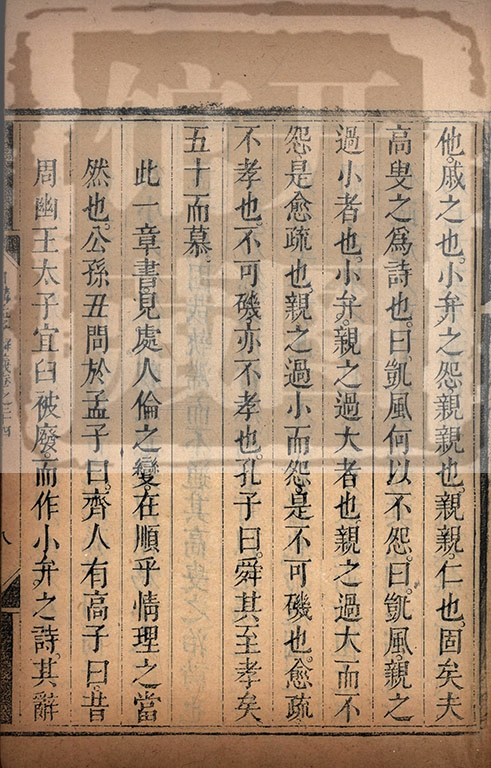 他。戚之也。小弁之怨親親也。親親。仁也。固矣夫
高叟之爲詩也。曰。凱風何以不怨。曰。凱風。親之
過小者也。小弁。親之過大者也。親之過大而不
怨。是愈疏也。親之過小而怨。是不可磯也。愈疏
不孝也。不可磯。亦不孝也。孔子曰。舜其至孝矣
五十而慕。
此一章書。見處人倫之變。在順乎情理之當
然也。公孫丑問於孟子曰。齊人有高子曰。昔
周幽王太子宜臼被廢。而作小弁之詩。其辭